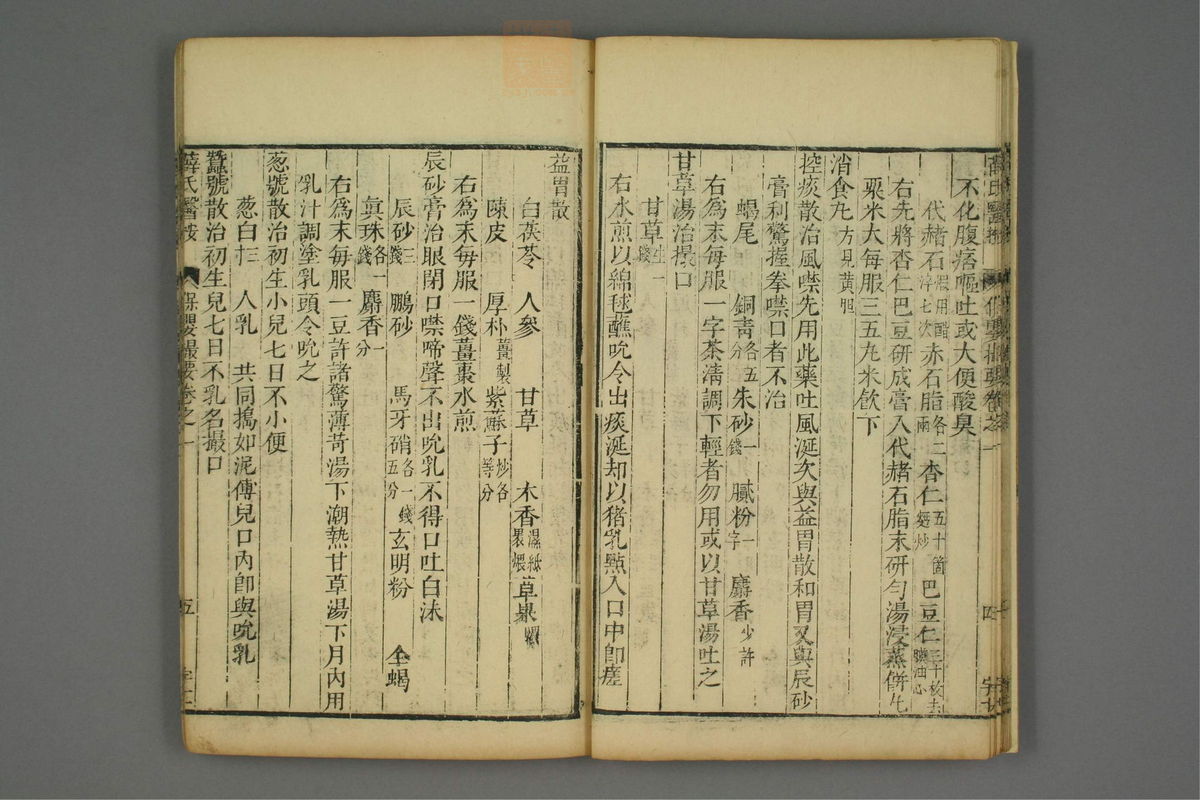 不化腹痞嘔吐或大便酸臭
代赭石煆用醋淬七次 赤石脂各二兩 杏仁五十箇麵炒 巴豆仁三十枚去膜油心
右先將杏仁巴豆研成膏入代赭石脂末研勻湯浸蒸餅丸
粟米大每服三五丸米飲下
消食丸方見黄疸
控痰散治風噤先用此藥吐風涎次與益胃散和胃又與辰砂
膏利驚握拳噤口者不治
蝎尾 銅青各五分 朱砂一錢 膩粉一字 麝香少許
右為末每服一字茶清調下輕者勿用或以甘草湯吐之
甘草湯治撮口
甘草生一錢
右水煎以綿毬蘸吮令出痰涎却以猪乳㸃入口中即瘥
益胃散
白茯苓 人參 甘草 木香濕紙裹煨 草果煨
陳皮 厚朴薑製 紫蘇子炒各等分
右為末每服一錢薑棗水煎
辰砂膏治眼閉口噤啼聲不出吮乳不得口吐白沫
辰砂三錢 鵬砂 馬牙硝各一錢五分 玄明粉 全蝎
眞珠各一錢 麝香一分
右爲末每服一豆許諸驚薄苛湯下潮熱甘草湯下月內用
乳汁調塗乳頭令吮之
葱號散治初生小兒七日不小便
葱白三寸 人乳 共同搗如泥傅兒口內即與吮乳
蠶號散治初生兒七日不乳名撮口
薛氏醫按 保嬰撮要卷之一 五